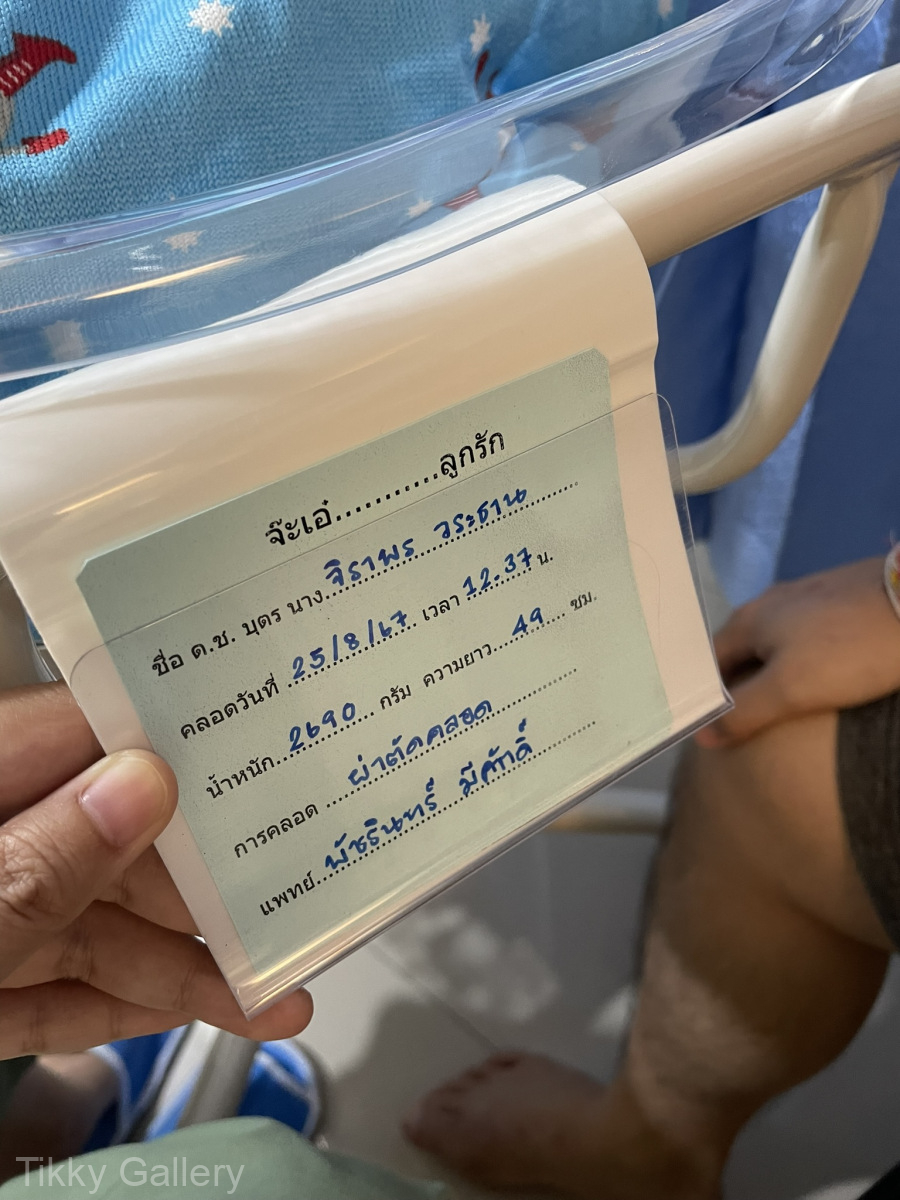 จ๊ะเอ๋...........ลูกรัก
ชื่อ ด.ช. บุตร นาง จิราพร วระธาน
คลอดวันที่ 25/8/67 เวลา 12.37 น.
น้ำหนัก 2690 กรัม ความยาว 49 ซม.
การคลอด ผ่าตัดคลอด
แพทย์ พัชรินทร์ มีศักดิ์
Tikky Gallery